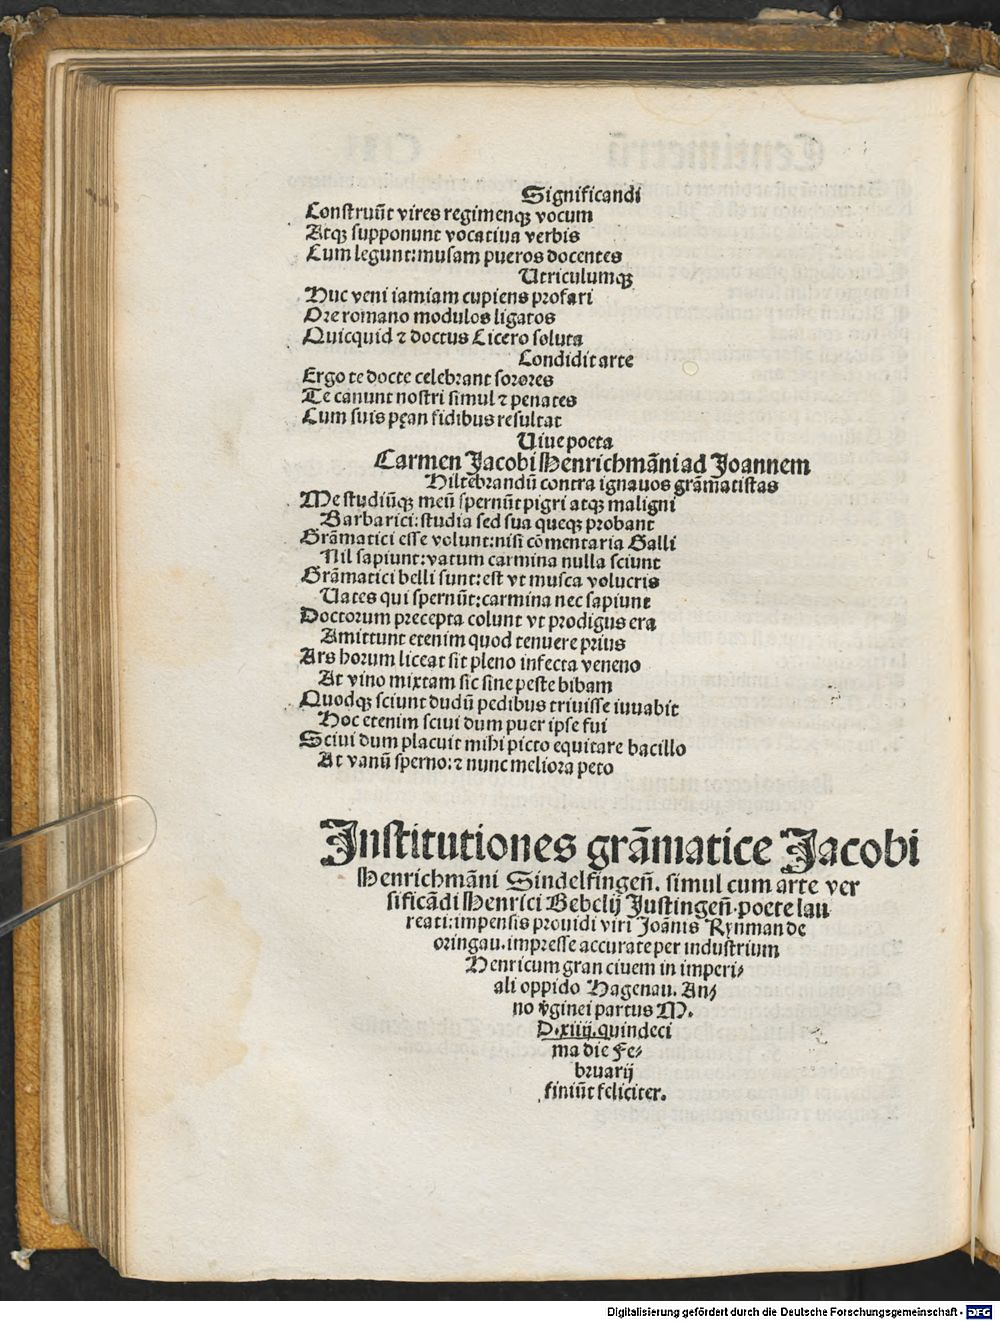 Significandi
Construūt vires regimenqꝫ vocum
Atqꝫ supponunt vocatiua verbis
Cum legunt: musam pueros docentes
Utriculumqꝫ
Huc veni iamiam cupiens profari
Ore romano modulos ligatos
Quicquid ⁊ doctus Cicero soluta
Condidit arte
Ergo te docte celebrant sorores
Te canunt nostri simul ⁊ penates
Cum suis pęan fidibus resultat
Uiue poeta
Carmen Jacobi Henrichmāni ad Joannem
Hiltebrandū contra ignauos grāmatistas
Me studiūqꝫ meū spernūt pigri atqꝫ maligni
Barbarici: studia sed sua queqꝫ probant
Grāmatici esse volunt: nisi cōmentaria Galli
Nil sapiunt: vatum carmina nulla sciunt
Grāmatici belli sunt: est vt musca volucris
Uates qui spernūt: carmina nec sapiunt
Doctorum precepta colunt vt prodigus era
Amittunt etenim quod tenuere prius
Ars horum liceat sit pleno infecta veneno
At vino mixtam sic sine peste bibam
Quodqꝫ sciunt dudū pedibus triuisse iuuabit
Hoc etenim sciui dum puer ipse fui
Sciui dum placuit mihi picto equitare bacillo
At vanū sperno: ⁊ nunc meliora peto
Institutiones grāmatice Jacobi
Henrichmāni Sindelfingen̄. simul cum arte ver
sificādi Henrici Bebelij Justingen̄. poete lau
reati: impensis prouidi viri Joānis Rynman de
oringau. impresse accurate per industrium
Henricum gran ciuem in imperi⸗
ali oppido Hagenau. An⸗
no v̄ginei partus M.
D.xiiij. quindeci
ma die Fe⸗
bruarij
finiūt feliciter.
Digitalisierung gefördert durch die Deutsche Forschungsgemeinschaft - DFG